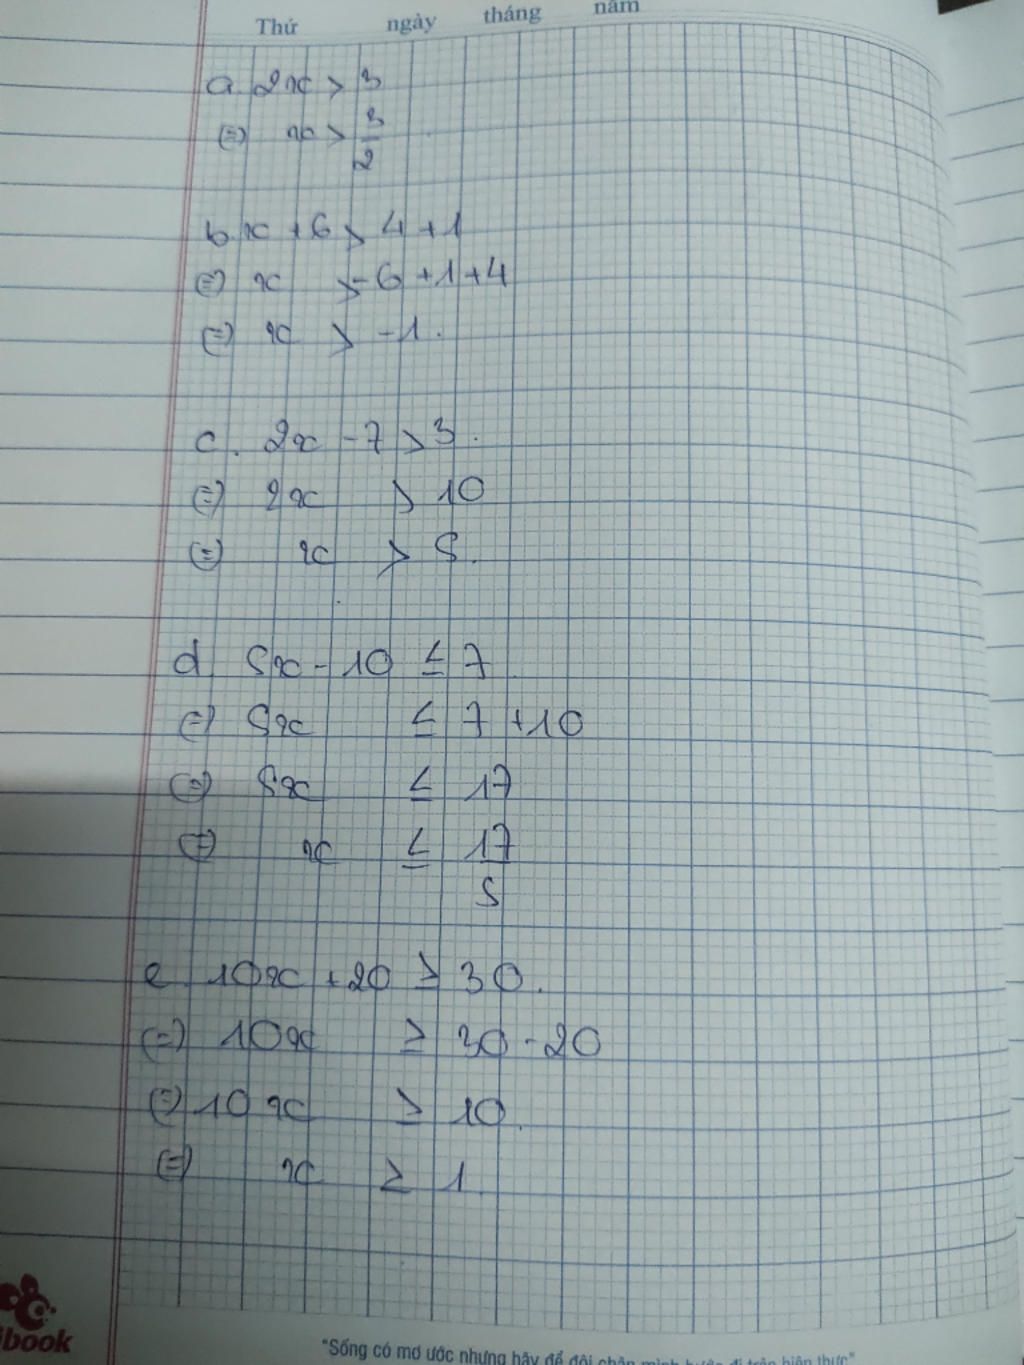 Thứ ngày tháng năm
a. 2x > 3
(=) x > 3/2
b. x + 6 > 4 + 1
(=) x > -6 + 1 + 4
(=) x > -1.
c. 2x - 7 > 3.
(=) 2x > 10
(=) x > 5.
d. 5x - 10 ≤ 7
(=) 5x ≤ 7 + 10
(=) 5x ≤ 17
(=) x ≤ 17/5
e. 10x + 20 ≥ 30.
(=) 10x ≥ 30 - 20
(=) 10x ≥ 10.
(=) x ≥ 1.
book
"Sống có mơ ước nhưng hãy để đôi chân mình bước đi trên hiện thực"